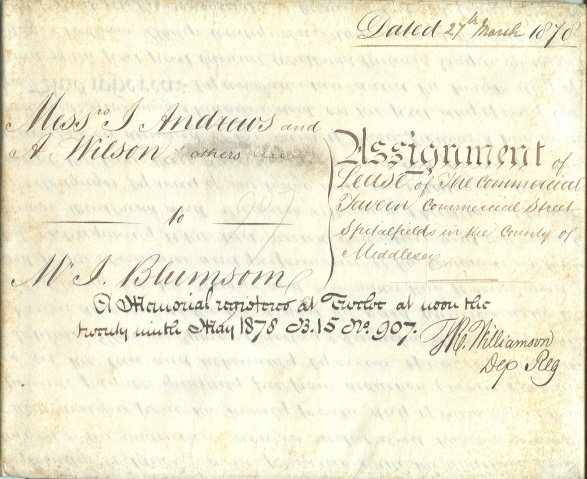 Dated 27th March 1878
Messrs J Andrews and
A. Wilson others
to
Mr J. Blumsom
Assignment of
Lease of The Commercial
Tavern Commercial Street
Spitalfields in the County of
Middlesex
A Memorial registered at Twelve at noon the
twenty ninth May 1878 B. 15 No. 907.
Williamson
Dep Reg